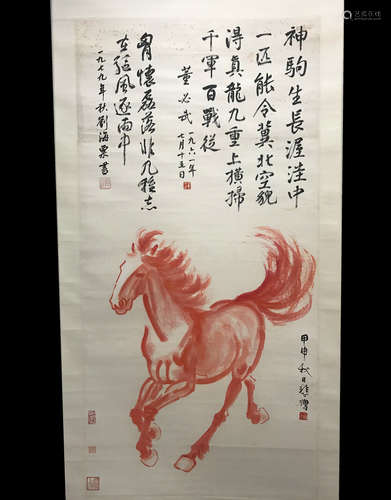 神駒生長渥洼中
一匹能令冀北空貌
得真龍九重上橫掃
千軍百戰從
董必武
一九六一年
七月十三日
胷懷磊落非凡強志
在追風逐雨中
一九七九年秋劉海粟書
甲申秋日悲鴻